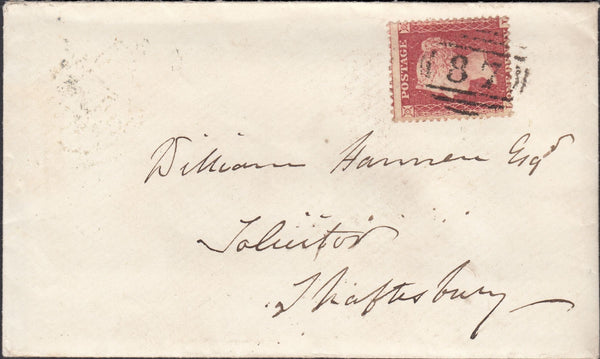 POSTAGE
87
William Hannen Esqr
Solicitor
Shaftesbury